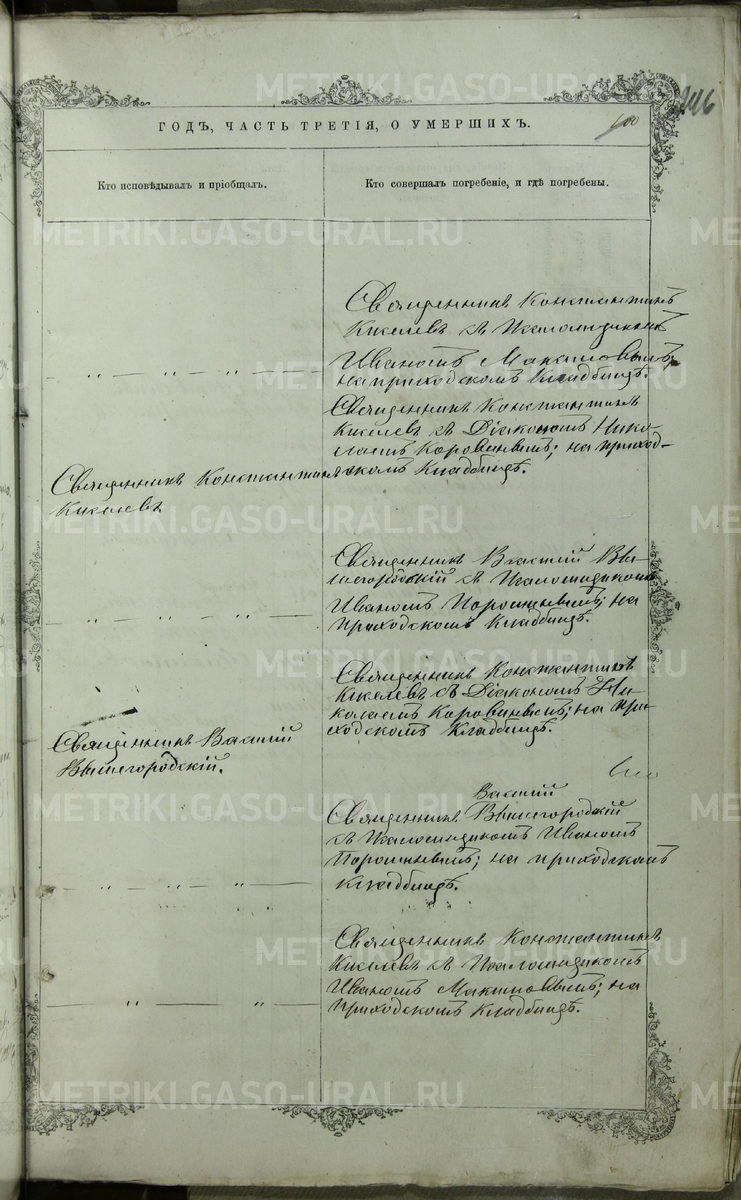 146
ГОДЪ, ЧАСТЬ ТРЕТІЯ, О УМЕРШИХЪ.
100
Кто исповѣдывалъ и пріобщалъ.
Кто совершалъ погребеніе, и гдѣ погребены.
Священникъ Константинъ
Киселевъ съ Псаломщикомъ
Иваномъ Максимовымъ;
на приходскомъ Кладбищѣ.
— " — " — " —
Священникъ Константинъ
Киселевъ съ Діакономъ Нико-
лаемъ Коровинымъ; на приход-
скомъ Кладбищѣ.
Священникъ Константинъ
Киселевъ
Священникъ Василій Вы-
шегородскій съ Псаломщикомъ
Иваномъ Порошинымъ; на
приходскомъ Кладбищѣ.
— " — " — " —
Священникъ Константинъ
Киселевъ съ Діакономъ Ни-
колаемъ Коровинымъ; на при-
ходскомъ Кладбищѣ.
Священникъ Василій
Вышегородскій.
Василій
Священникъ Вышегородскій
съ Псаломщикомъ Иваномъ
Порошинымъ; на приходскомъ
Кладбищѣ.
— " — " — " —
Священникъ Константинъ
Киселевъ съ Псаломщикомъ
Иваномъ Максимовымъ; на
Приходскомъ Кладбищѣ.
— " — " —
METRIKI.GASO-URAL.RU